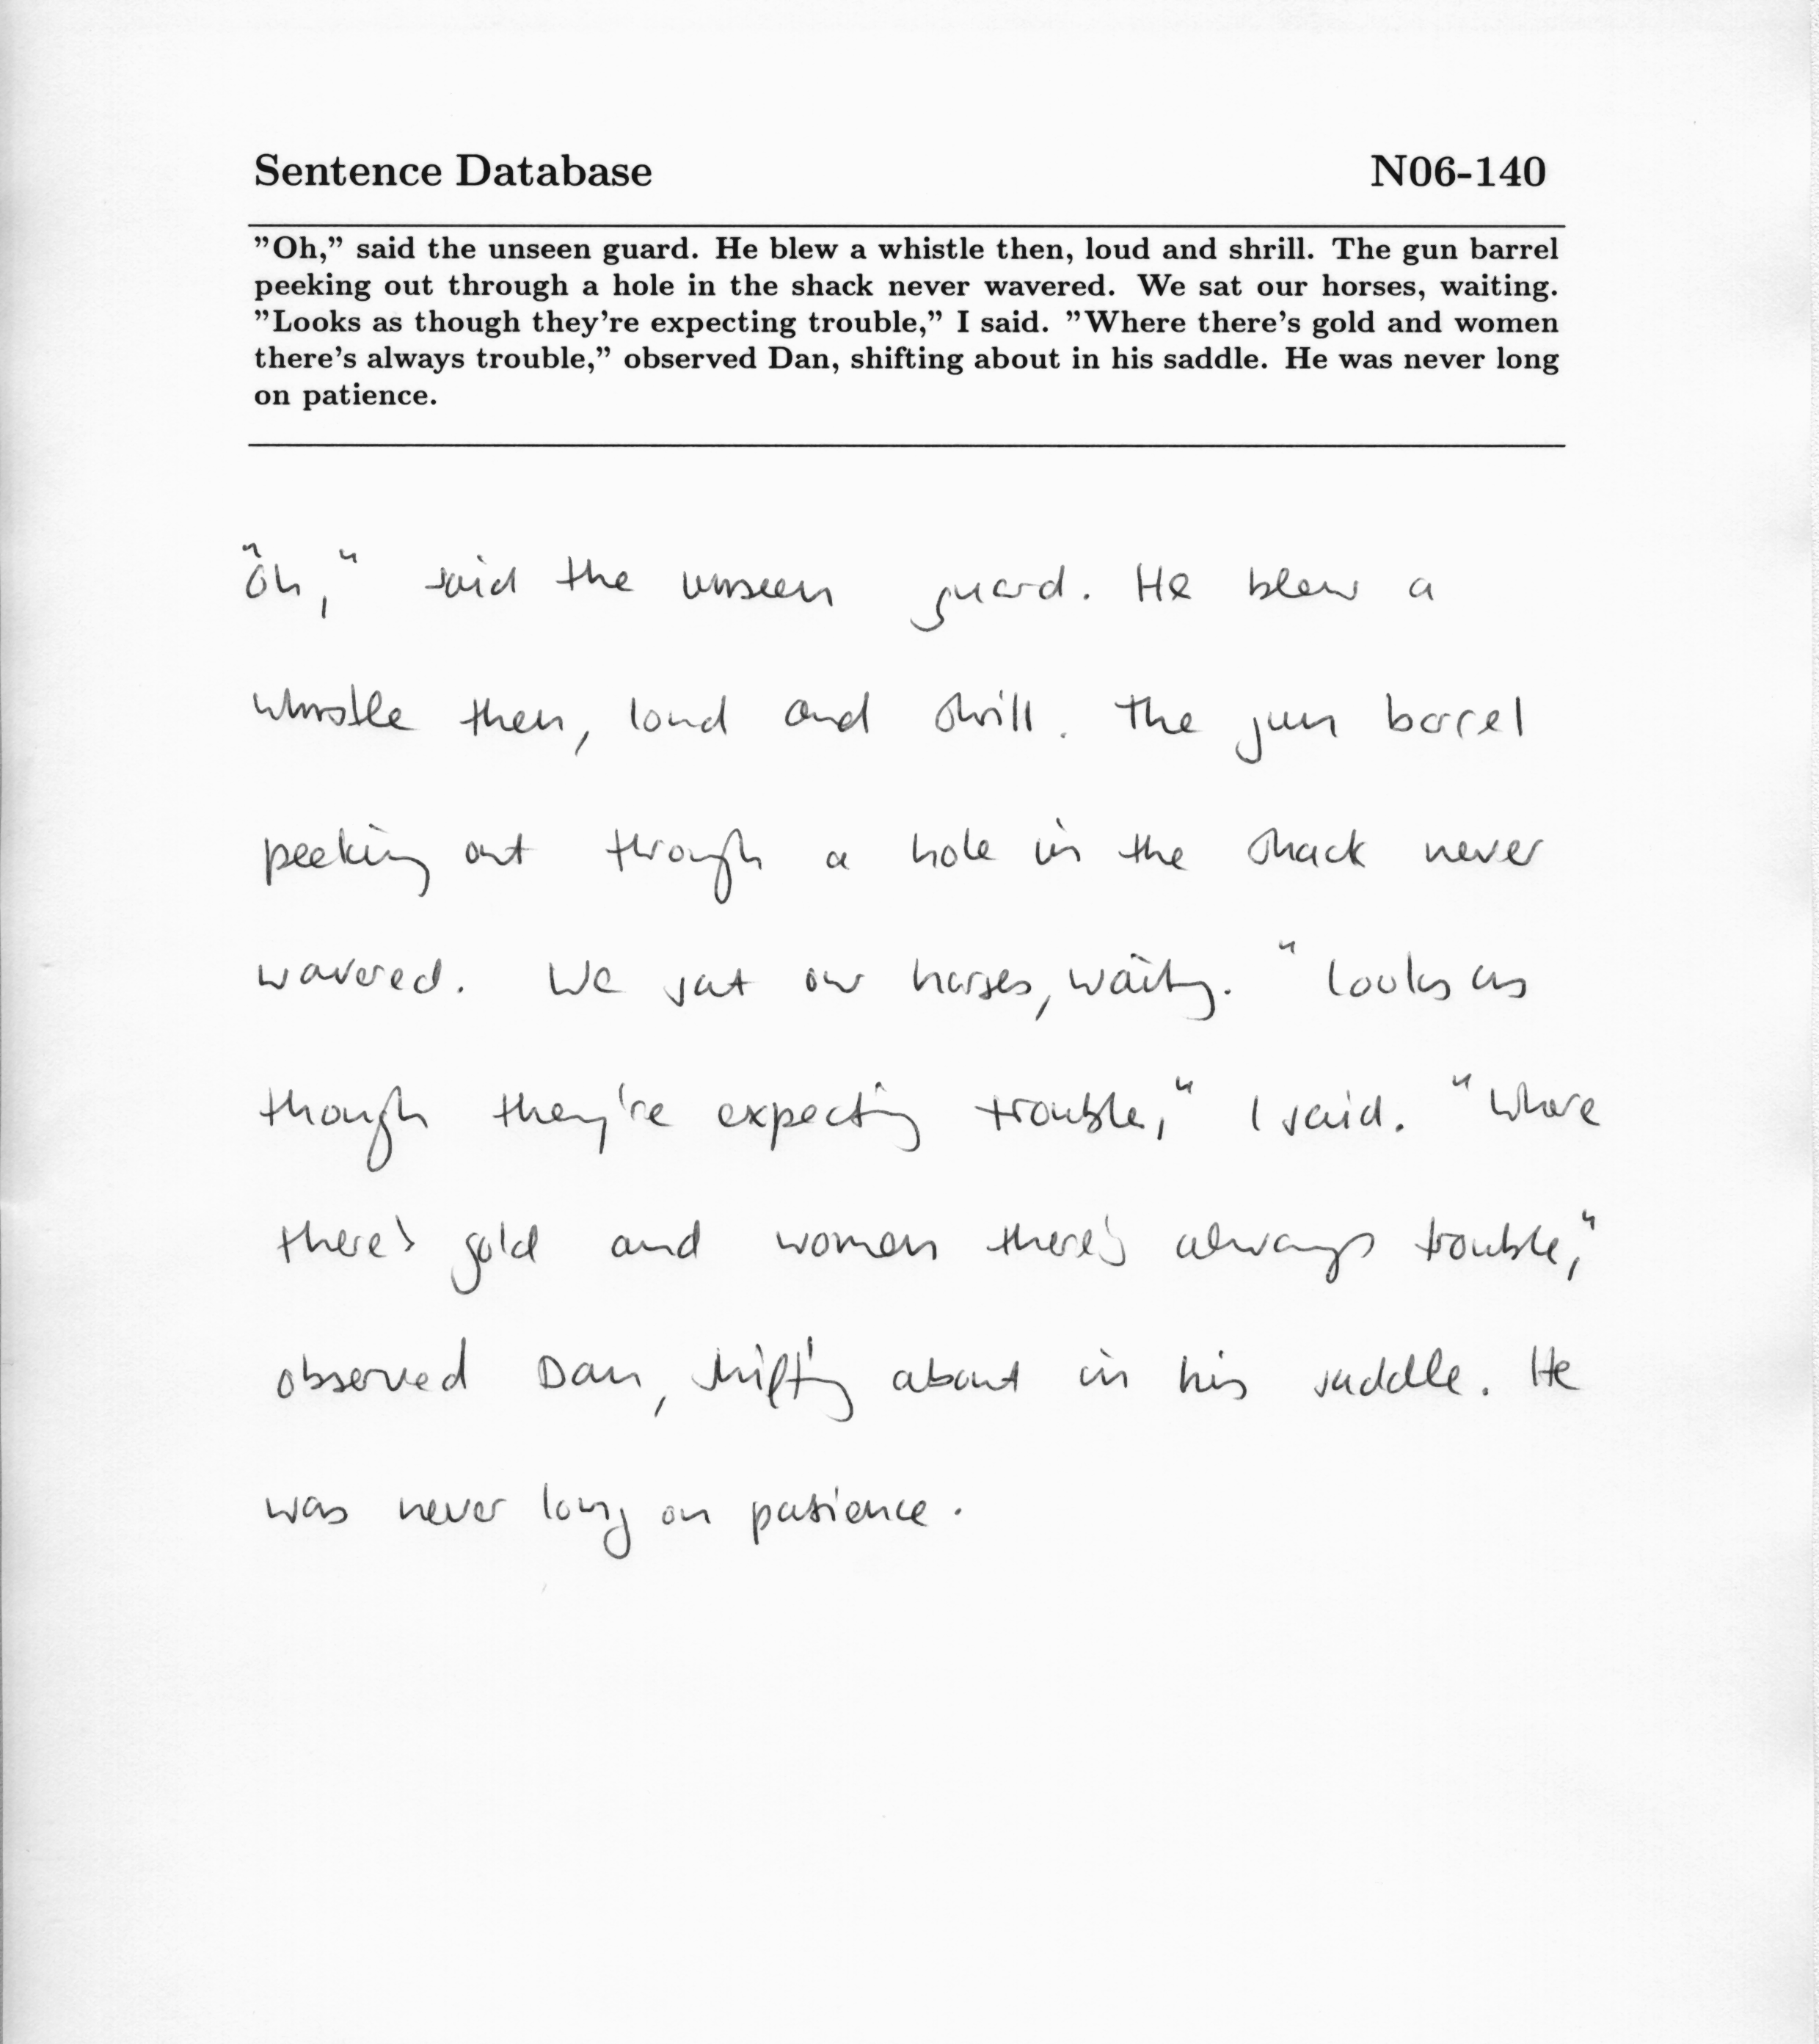 Sentence Database N06-140
"Oh," said the unseen guard. He blew a whistle then, loud and shrill. The gun barrel
peeking out through a hole in the shack never wavered. We sat our horses, waiting.
"Looks as though they're expecting trouble," I said. "Where there's gold and women
there's always trouble," observed Dan, shifting about in his saddle. He was never long
on patience.
"Oh," said the unseen guard. He blew a
whistle then, loud and shrill. The gun barrel
peeking out through a hole in the shack never
wavered. We sat our horses, waiting. "Looks as
though they're expecting trouble," I said. "Where
there's gold and women there's always trouble,"
observed Dan, shifting about in his saddle. He
was never long on patience.